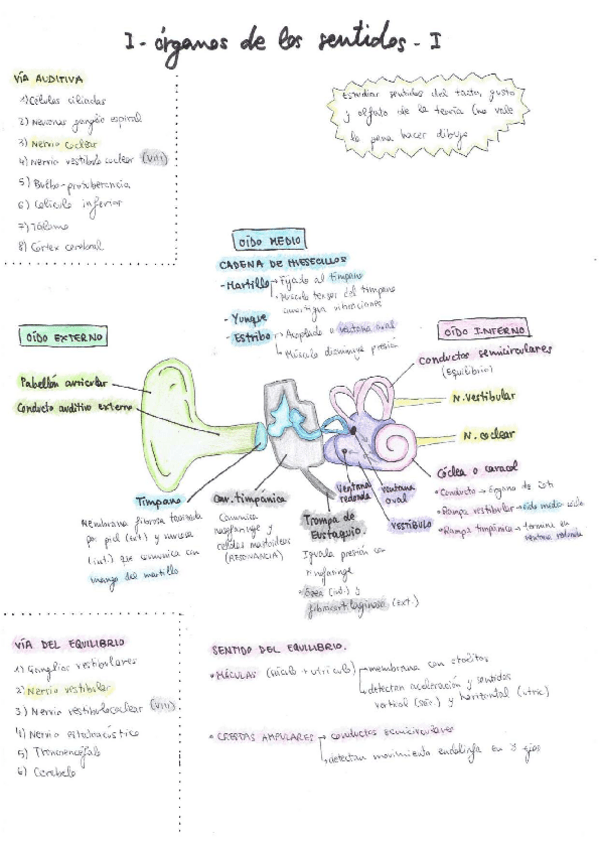 I - órganos de los sentidos - I
VÍA AUDITIVA
1) Células ciliadas
2) Neuronas ganglio espiral
3) Nervio coclear
4) Nervio vestíbulo coclear (VIII)
5) Bulbo-protuberancia
6) Colículo inferior
7) Tálamo
8) Córtex cerebral
Estudiar sentidos del tacto, gusto
y olfato de la teoría (no vale
la pena hacer dibujo
OÍDO MEDIO
CADENA DE HUESECILLOS
- Martillo → Fijado al tímpano
→ Músculo tensor del tímpano
amortigua vibraciones
- Yunque
- Estribo → Acoplado a ventana oval
→ Músculo disminuye presión
OÍDO EXTERNO
Pabellón auricular
Conducto auditivo externo
OÍDO INTERNO
Conductos semicirculares
(Equilibrio)
N. Vestibular
N. coclear
Cóclea o caracol
• Conducto → órgano de
• Rampa vestibular → oído medio
• Rampa timpánica → termina en
ventana redonda
Ventana
redonda
ventana
oval
VESTÍBULO
Tímpano
Membrana fibrosa tapizada
por piel (ext.) y mucosa
(int.) que comunica con
mango del martillo
Cav. timpánica
Comunica
nasofaringe y
celdas mastoideas
(RESONANCIA)
Trompa de
Eustaquio.
Iguala presión con
rinofaringe
• ósea (int.) y
fibrocartilaginosa (ext.)
VÍA DEL EQUILIBRIO
1) Ganglios vestibulares
2) Nervio vestibular
3) Nervio vestibulococlear (VIII)
4) Nervio estatoacústico
5) Troncoencéfalo
6) Cerebelo
SENTIDO DEL EQUILIBRIO.
• MÁCULAS (sáculo + utrículo) → membrana con otolitos
→ detectan aceleración y sentidos
vertical (sác.) y horizontal (utríc)
• CRESTAS AMPULARES → conductos semicirculares
→ detectan movimiento endolinfa en 3 ejes